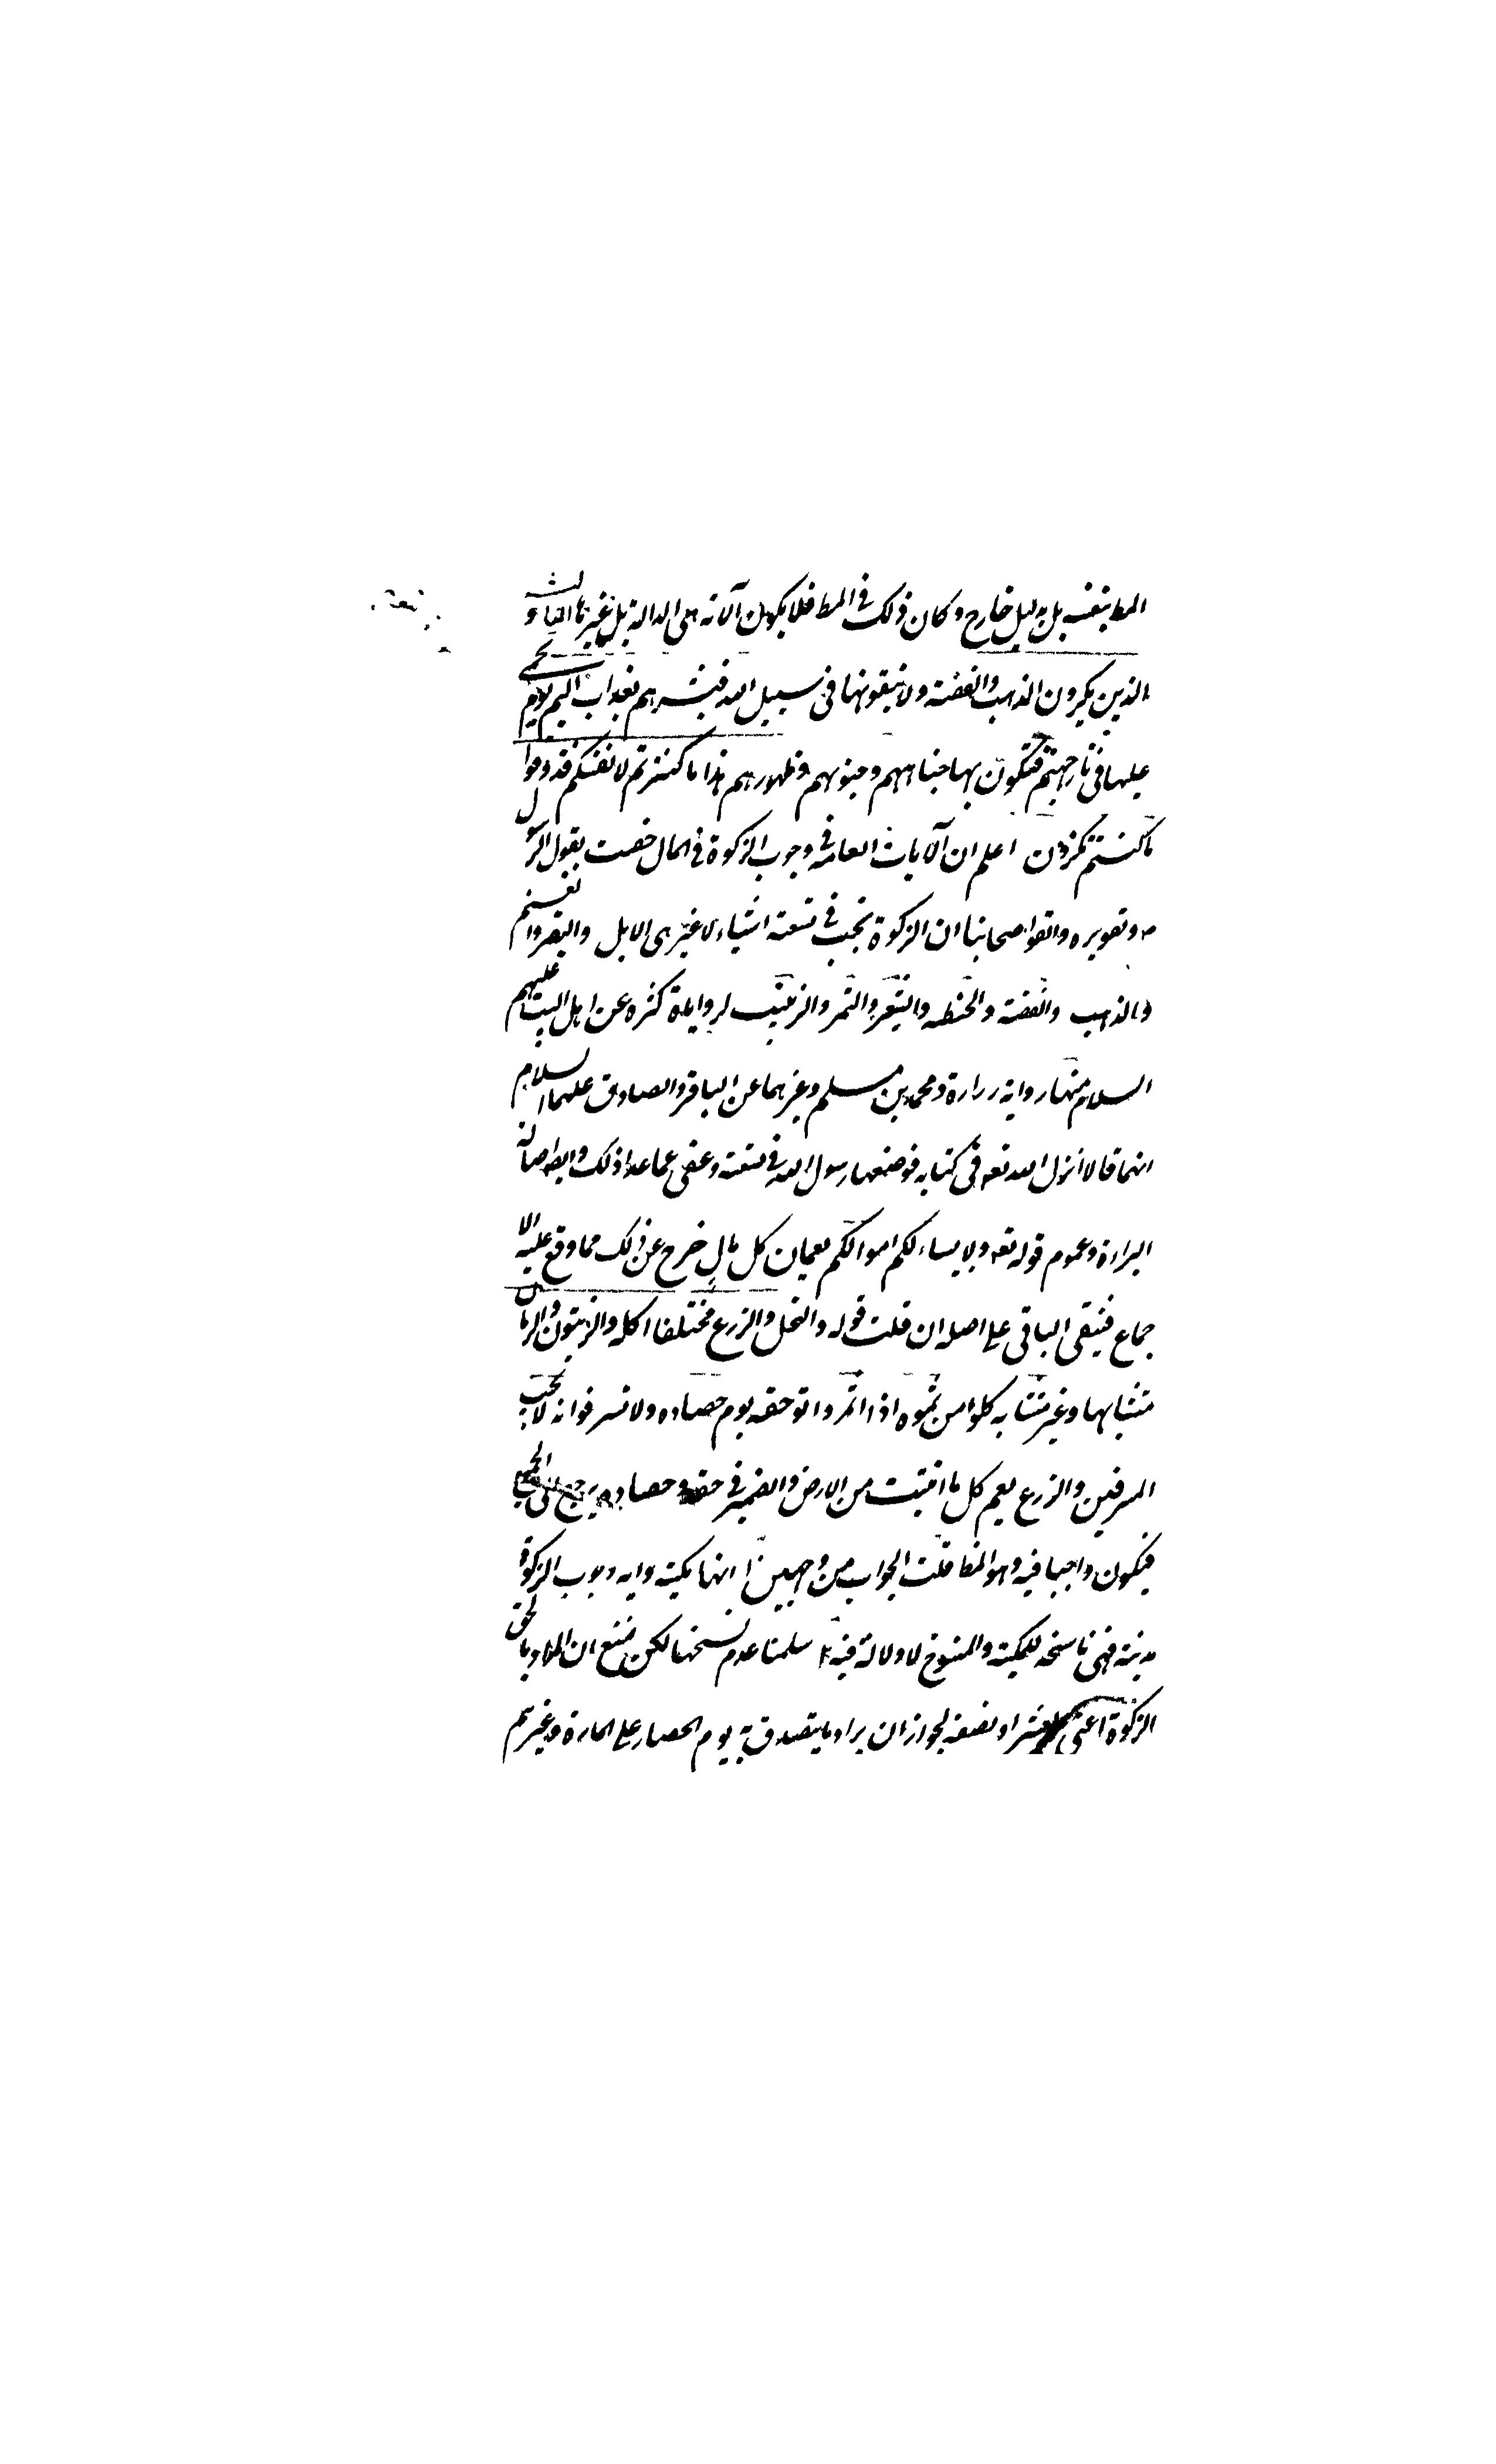 المط بنفسه بل بدليل خارج وكان ذلك في المط فلا يكون الآية هي الدالة بل غيرها الثالثة و
الذين يكنزون الذهب والفضة ولا ينفقونها في سبيل الله فبشرهم بعذاب اليم يوم يحمى
عليها في نار جهنم فتكوى بها جباههم وجنوبهم وظهورهم هذا ما كنزتم لانفسكم فذوقوا
ما كنتم تكنزون اعلم ان الآيات العامة في وجوب الزكوة في المال خصت بقول الرسول
ص وتقريره واتفق اصحابنا ان الزكوة تجب في تسعة اشياء لا غير هي الابل والبقر والغنم
والذهب والفضة والحنطه والشعير والتمر والزبيب لرواياة كثره عن اهل البيت عليهم
السلام منها رواية زرارة ومحمد بن مسلم وغيرهما عن الباقر والصادق عليهما السلام
انهما قالا انزل الله تعه في كتابه فوضعها رسول الله في تسعة وعفى عما عدا ذلك وايط اصالة
البراءة وعموم قوله تعه ولا يساءلكم اموالكم يعمان كل مال خرج عن ذلك مما وقع عليه الا
جماع فيبقى الباقي على اصله ان قلت قوله والنخل والزرع مختلفا اكله والزيتون والرمان
متشابها وغير متشابه كلوا من ثمره اذا اثمر واتو حقه يوم حصاده ولا تسرفوا انه لا يحب
المسرفين والزرع يعم كل ما انبتت من الارض والضمير في حقه وحصاده يرجع الى الجميع
فيكون واجبا فيه وهو المط قلت الجواب من وجهين ا انها مكية وايه وجوب الزكوة
مدينة فهي ناسخه للمكية والمنسوخ لا دلالة فيه ٢ سلمنا عدم نسخها لكن نمنع ان المراد بالحق
الزكوة اعنى العشر او نصفه لجواز ان يراد ما يتصدق به يوم الحصاد على المارة وغيرهم